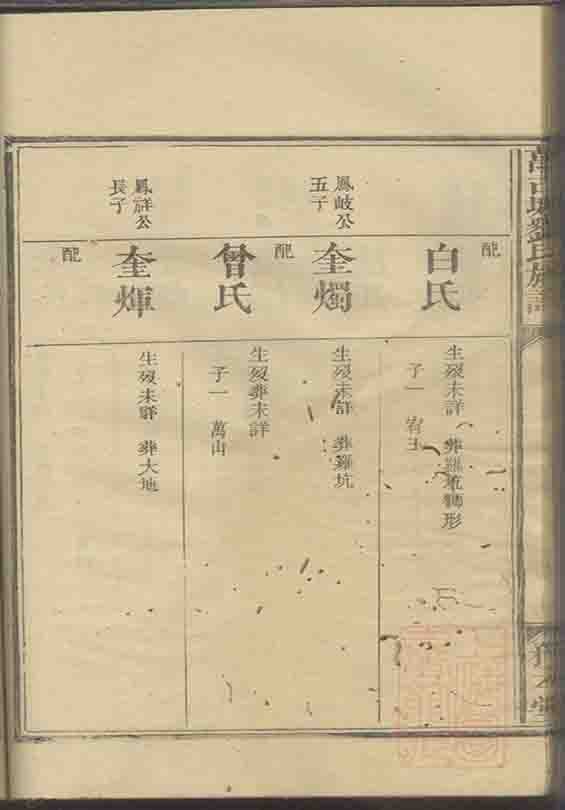 配
白氏
生歿未詳 葬羅坑獅形
子一
鳳岐公
五子
奎燭
生歿未詳 葬羅坑
配
曾氏
生歿葬未詳
子一 萬山
鳳詳公
長子
奎煇
生歿未詳 葬大地
配